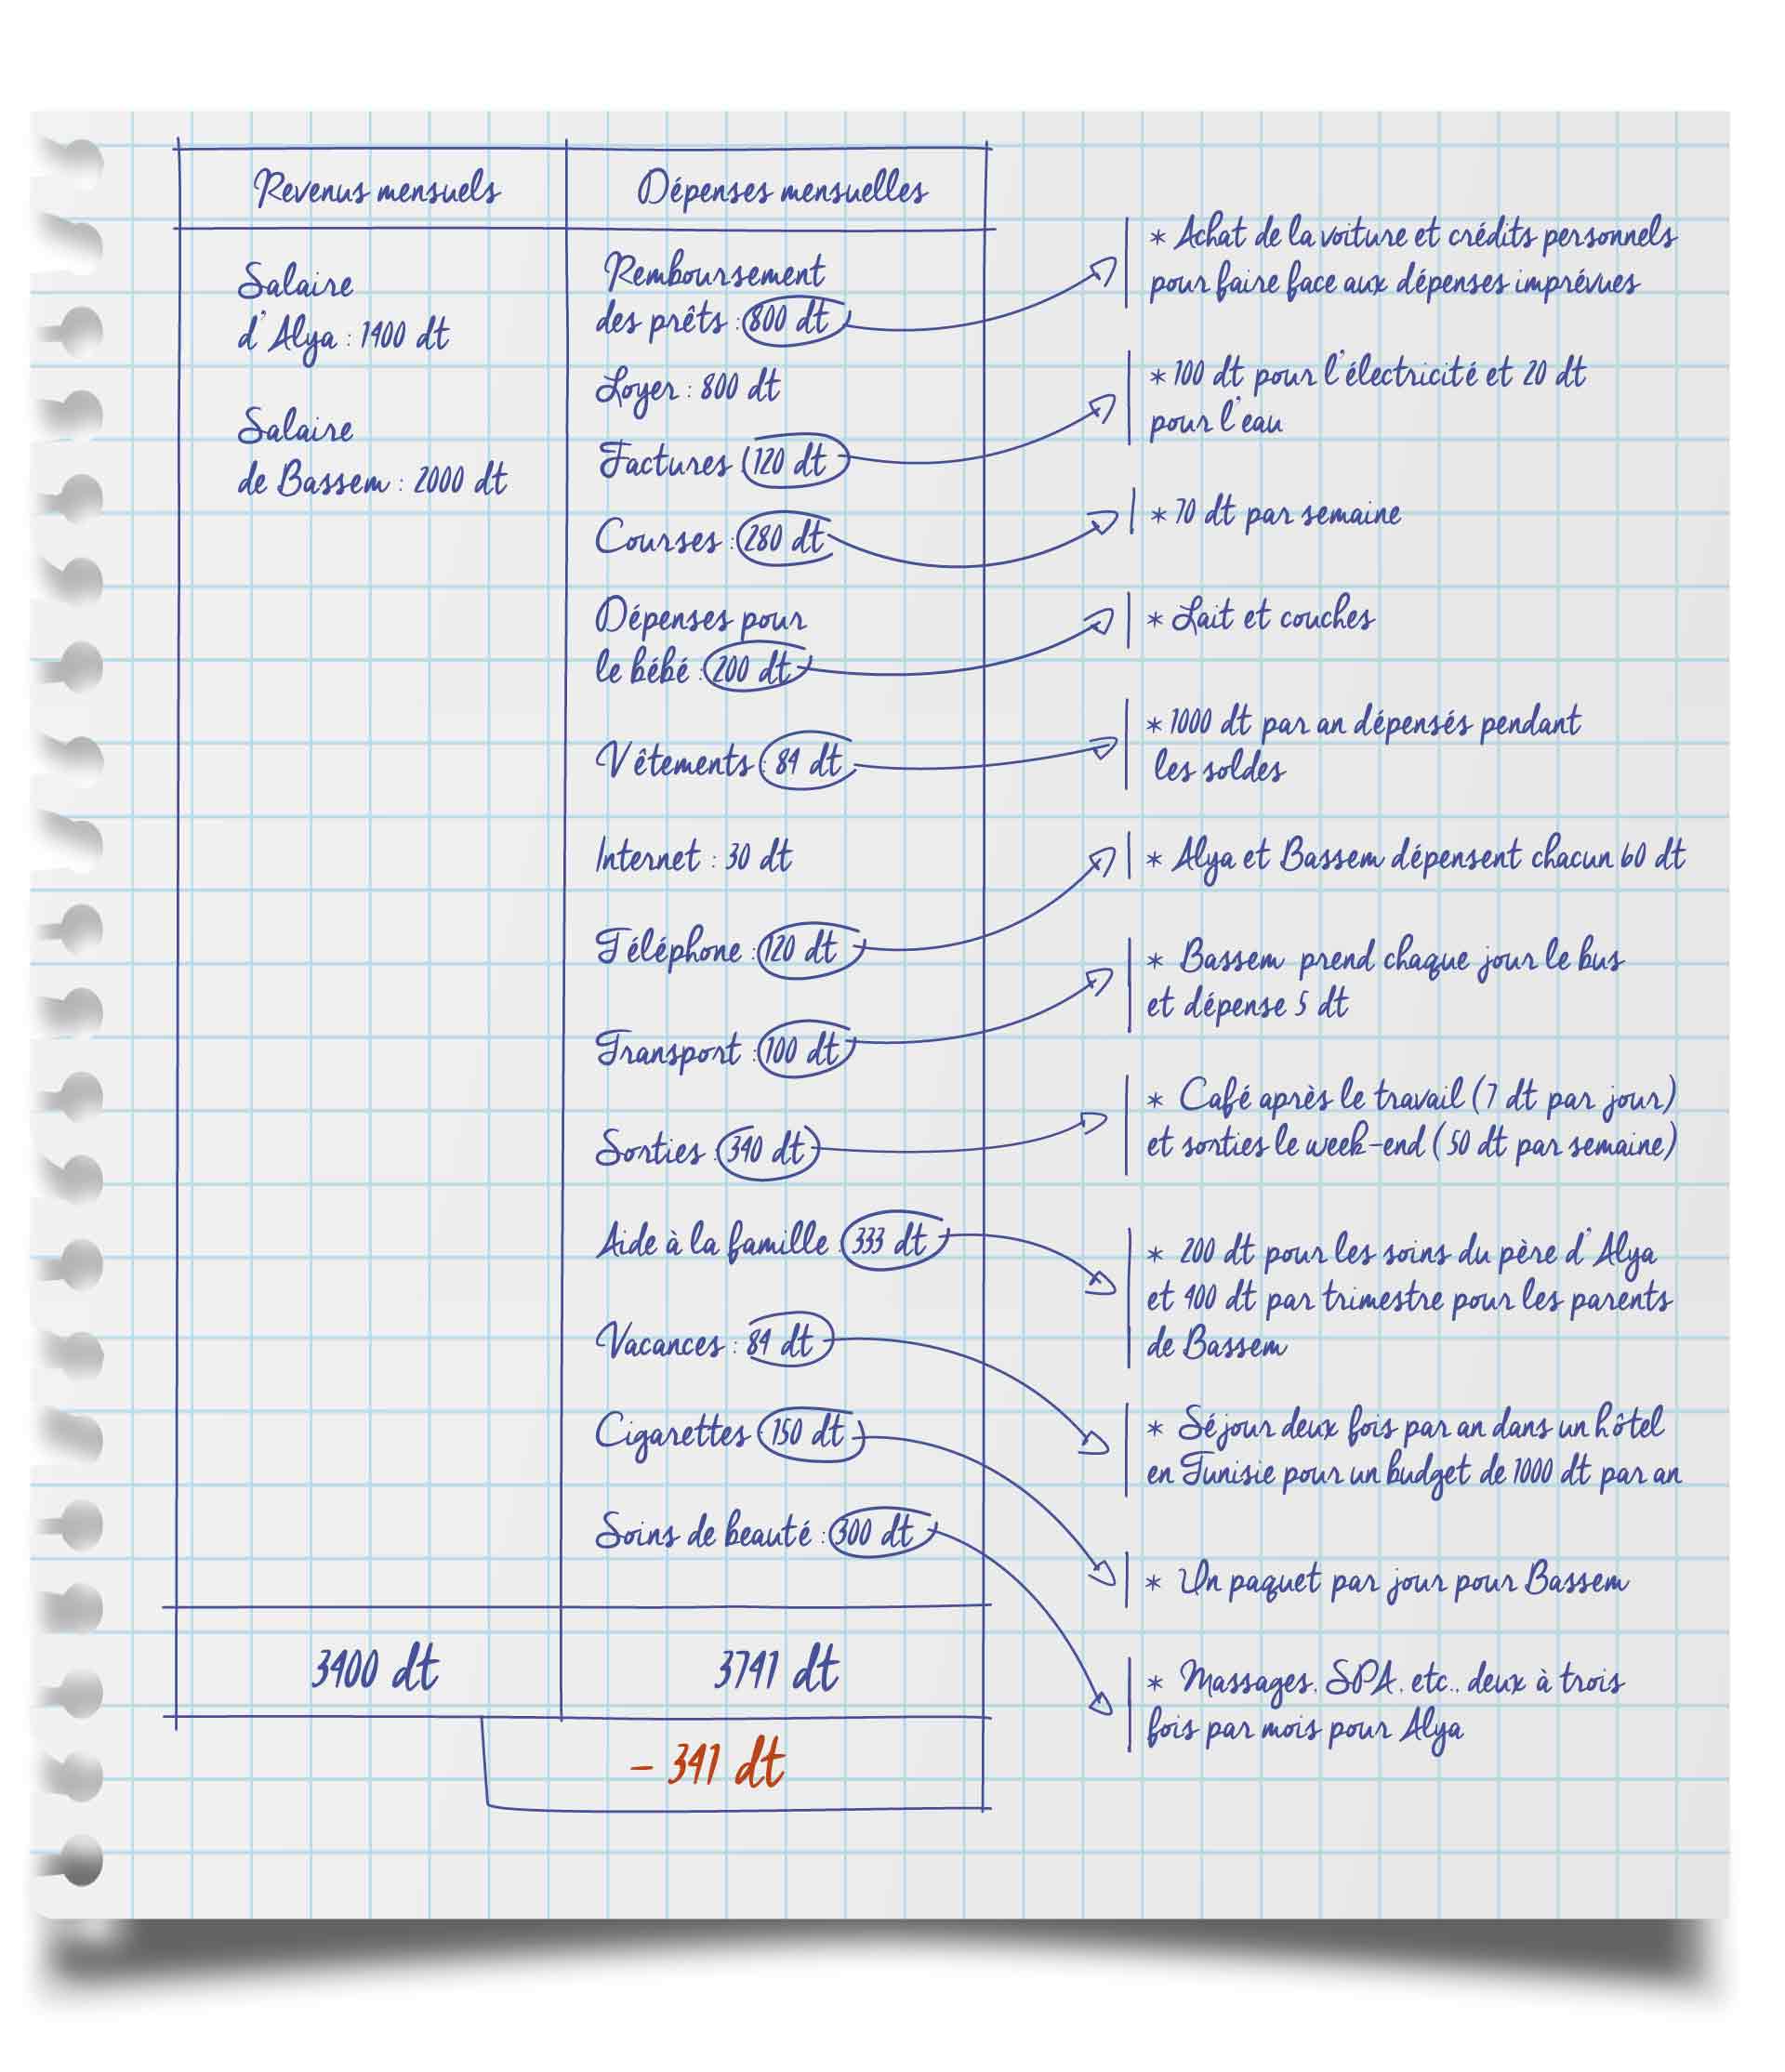 Revenus mensuels
Dépenses mensuelles
Salaire
d'Alya : 1400 dt
Salaire
de Bassem : 2000 dt
Remboursement
des prêts : 800 dt
Loyer : 800 dt
Factures : 120 dt
Courses : 280 dt
Dépenses pour
le bébé : 200 dt
Vêtements : 84 dt
Internet : 30 dt
Téléphone : 120 dt
Transport : 100 dt
Sorties : 340 dt
Aide à la famille : 333 dt
Vacances : 84 dt
Cigarettes : 150 dt
Soins de beauté : 300 dt
3400 dt
3741 dt
- 341 dt
* Achat de la voiture et crédits personnels
pour faire face aux dépenses imprévues
* 100 dt pour l'électricité et 20 dt
pour l'eau
* 70 dt par semaine
* Lait et couches
* 1000 dt par an dépensés pendant
les soldes
* Alya et Bassem dépensent chacun 60 dt
* Bassem prend chaque jour le bus
et dépense 5 dt
* Café après le travail (7 dt par jour)
et sorties le week-end (50 dt par semaine)
* 200 dt pour les soins du père d'Alya
et 400 dt par trimestre pour les parents
de Bassem
* Séjour deux fois par an dans un hôtel
en Tunisie pour un budget de 1000 dt par an
* Un paquet par jour pour Bassem
* Massages, SPA, etc., deux à trois
fois par mois pour Alya